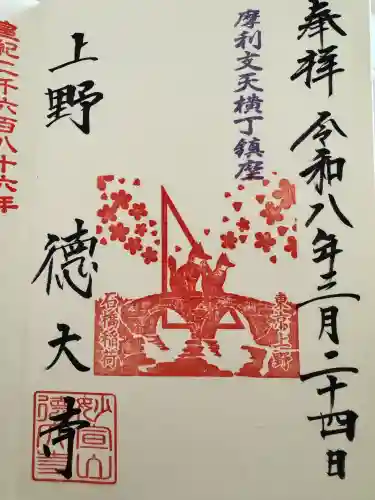 奉拝 令和八年三月二十四日
摩利支天横丁鎮座
東京都上野
石橋稲荷
上野 德大寺
皇紀二千六百八十六年